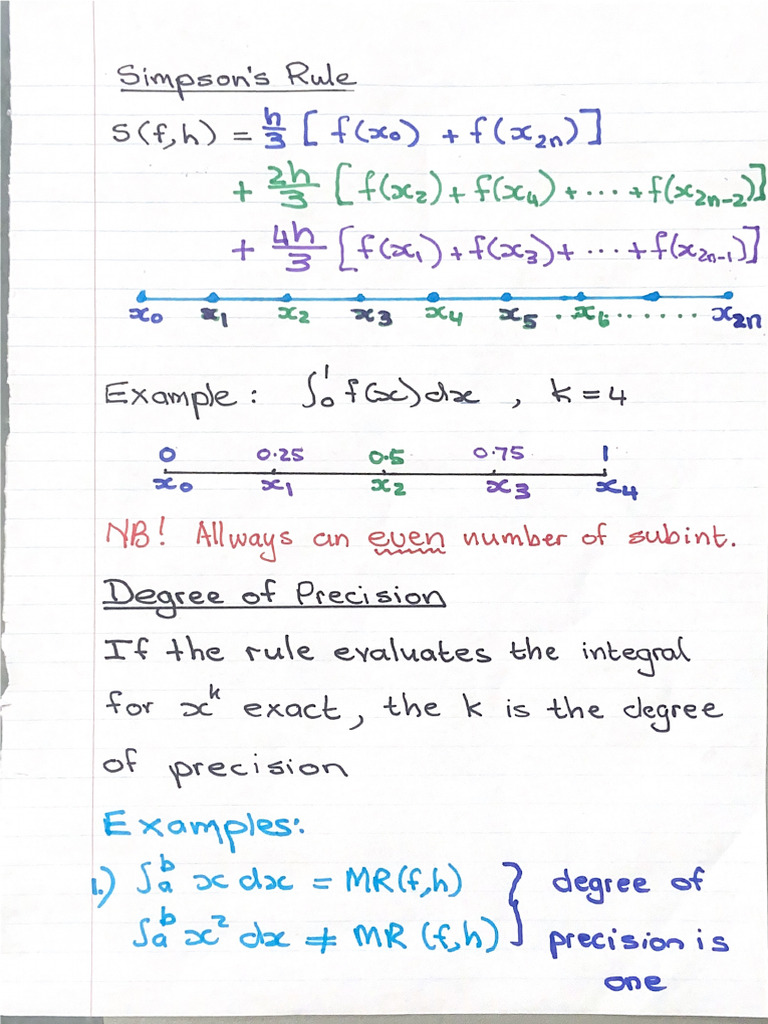 Simpson's Rule
S(f,h) = h/3 [ f(x₀) + f(x₂ₙ)]
+ 2h/3 [f(x₂) + f(x₄) + ... + f(x₂ₙ₋₂)]
+ 4h/3 [f(x₁) + f(x₃) + ... + f(x₂ₙ₋₁)]
x₀ x₁ x₂ x₃ x₄ x₅ . x₆ ...... x₂ₙ
Example : ∫₀¹ f(x) dx , k = 4
0 0.25 0.5 0.75 1
x₀ x₁ x₂ x₃ x₄
NB! Allways an even number of subint.
Degree of Precision
If the rule evaluates the integral
for xᵏ exact, the k is the degree
of precision
Examples:
1.) ∫ₐᵇ x dx = MR(f,h) } degree of
∫ₐᵇ x² dx ≠ MR (f,h) precision is
one